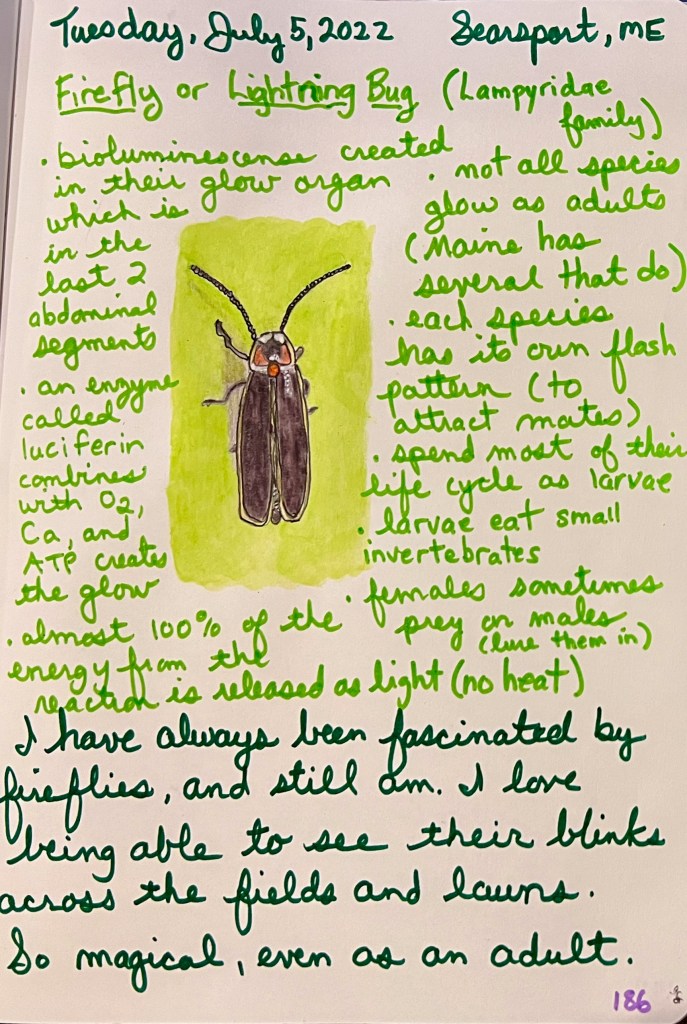 Tuesday, July 5, 2022 Searsport, ME
Firefly or Lightning Bug (Lampyridae
family)
• bioluminescense created
in their glow organ
which is
in the
last 2
abdominal
segments
• an enzyme
called
luciferin
combines
with O2,
Ca, and
ATP creates
the glow
• almost 100% of the
energy from the
reaction is released as light (no heat)
• not all species
glow as adults
(Maine has
several that do)
• each species
has its own flash
pattern (to
attract mates)
• spend most of their
life cycle as larvae
• larvae eat small
invertebrates
• females sometimes
prey on males
(lure them in)
I have always been fascinated by
fireflies, and still am. I love
being able to see their blinks
across the fields and lawns.
So magical, even as an adult.
186